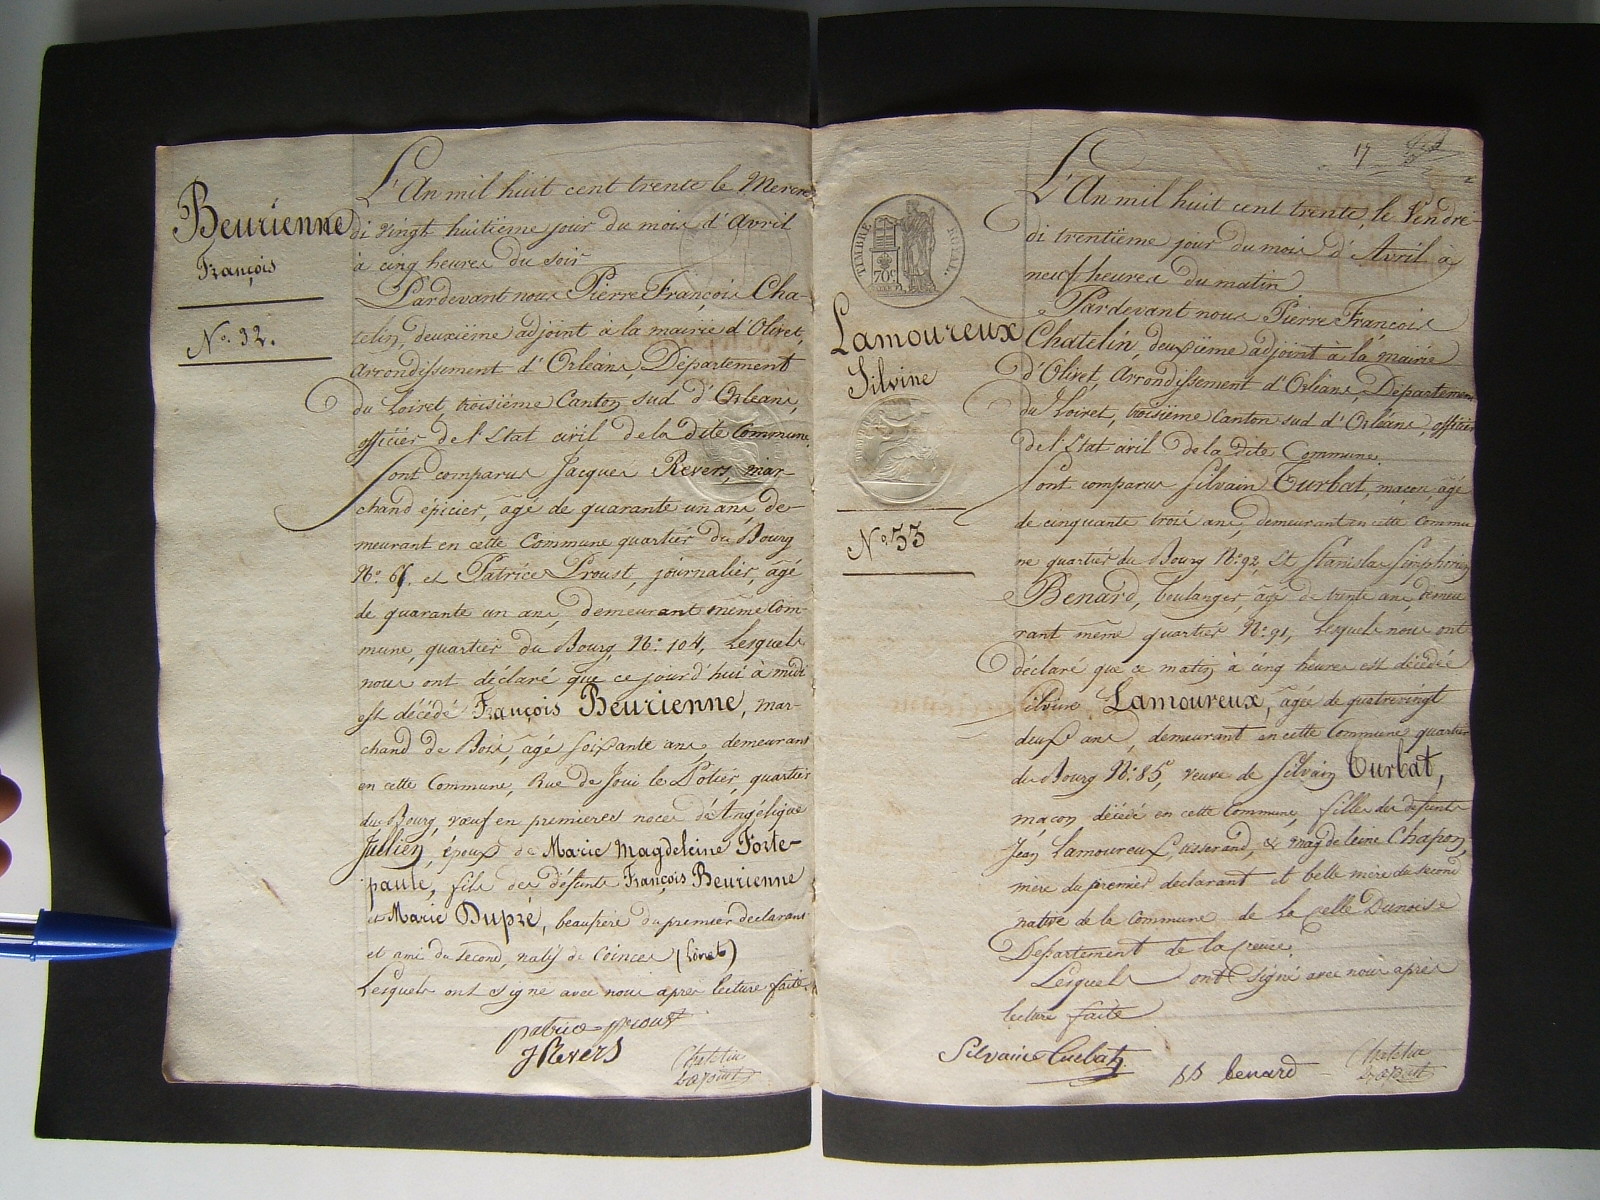 Beurienne
François
N.° 32.
L'An mil huit cent trente le Mercre
di vingt huitième jour du mois d'Avril
à cinq heures du soir
Pardevant nous Pierre François Cha-
telin, deuxième adjoint à la mairie d'Olivet,
Arrondissement d'Orléans, Département
du Loiret, troisième Canton sud d'Orléans,
officier de l'Etat civil de la dite Commune.
Sont comparus Jacques Revers, mar-
chand épicier, âgé de quarante un ans, de-
meurant en cette Commune quartier du Bourg
N.° et Patrice Proust, journalier, âgé
de quarante un ans, demeurant même Com-
mune, quartier du Bourg, N.° 104, Lesquels
nous ont déclaré que ce jourd'hui à midi
est décédé François Beurienne, mar-
chand de Bois, âgé soixante ans, demeurant
en cette Commune, Rue de Joui le Potier, quartier
du Bourg, vœuf en premières noces d'Angélique
Jullien, époux de Marie Magdeleine Forte-
paule, fils des défunts François Beurienne
et Marie Dupré, beaufrère du premier declarant
et ami du second, natif de Coinces (Loiret)
Lesquels ont signé avec nous après lecture faite.
patrice proust
J Revers
Chatelin
adjoint
17
TIMBRE ROYAL
70c
Lamoureux
Silvine
N.° 33
L'An mil huit cent trente, le Vendre
di trentième jour du mois d'Avril à
neuf heures du matin
Pardevant nous Pierre François
Chatelin, deuxième adjoint à la mairie
d'Olivet, Arrondissement d'Orléans, Département
du Loiret, troisième Canton sud d'Orléans, officier
de l'Etat civil de la dite Commune.
Sont comparus Silvain Turbat, maçon, âgé
de cinquante trois ans, demeurant en cette Commu
ne quartier du Bourg N.° 92, Et Stanislas Simphorien
Benard, boulanger, âgé de trente ans, demeu
rant même quartier N.° 91, Lesquels nous ont
déclaré que ce matin à cinq heures est décédée
Silvine Lamoureux, âgée de quatrevingt
deux ans, demeurant en cette Commune quartier
du Bourg N.° 85, veuve de Silvain Turbat,
maçon décédé en cette Commune, fille des défunts
Jean Lamoureux, tisserand, & Magdeleine Chapon,
mère du premier declarant et belle mère du second
native de la Commune de La Celle Dunoise
Département de la Creuse.
Lesquels ont signé avec nous après
lecture faite
Silvain Turbat
SS benard
Chatelin
adjoint